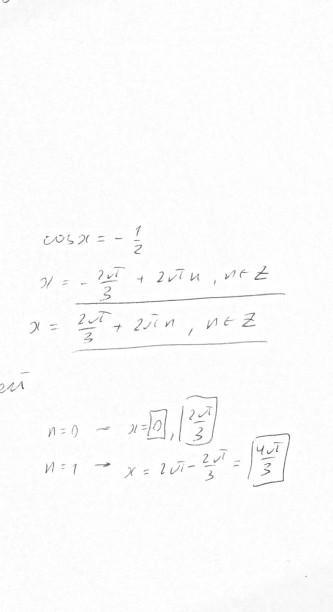 cosx = - 1/2
x = - 2π/3 + 2πn, n∈Z
x = 2π/3 + 2πn, n∈Z
ей
n=0 → x=0, 2π/3
n=1 → x = 2π - 2π/3 = 4π/3